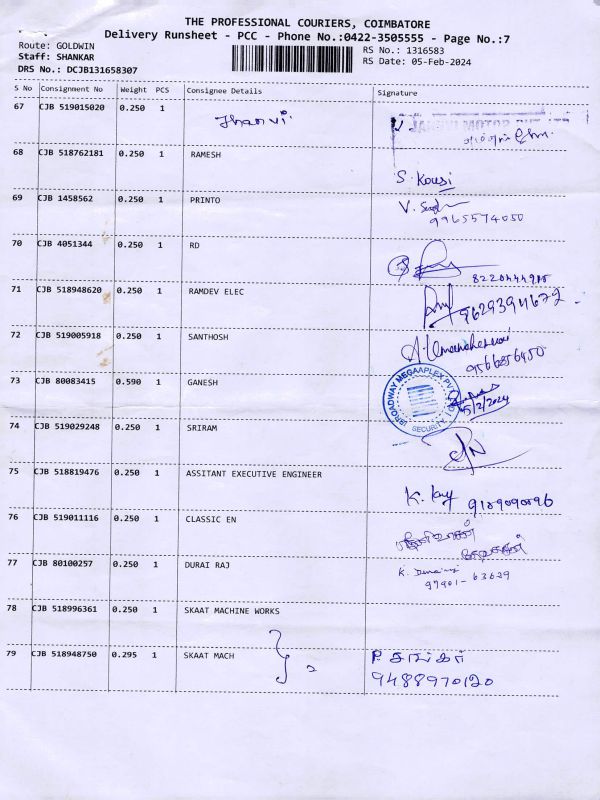 THE PROFESSIONAL COURIERS, COIMBATORE
Delivery Runsheet - PCC - Phone No.:0422-3505555 - Page No.:7
Route: GOLDWIN
Staff: SHANKAR
DRS No.: DCJB131658307
RS No.: 1316583
RS Date: 05-Feb-2024
S No Consignment No Weight PCS Consignee Details Signature
67 CJB 519015020 0.250 1 Jhanvi
68 CJB 518762181 0.250 1 RAMESH S. Kousi
69 CJB 1458562 0.250 1 PRINTO V.
9965574050
70 CJB 4051344 0.250 1 RD
8220444915
71 CJB 518948620 0.250 1 RAMDEV ELEC 9629394672
72 CJB 519005918 0.250 1 SANTHOSH A. Umamaheswari
9566856450
73 CJB 80083415 0.590 1 GANESH BROADWAY MEGAAPLEX PVT SECURITY
05/2/2024
74 CJB 519029248 0.250 1 SRIRAM
75 CJB 518819476 0.250 1 ASSITANT EXECUTIVE ENGINEER K.
76 CJB 519011116 0.250 1 CLASSIC EN
77 CJB 80100257 0.250 1 DURAI RAJ K.
97901-63629
78 CJB 518996361 0.250 1 SKAAT MACHINE WORKS
79 CJB 518948750 0.295 1 SKAAT MACH } 2 P. சங்கர்
9488970120